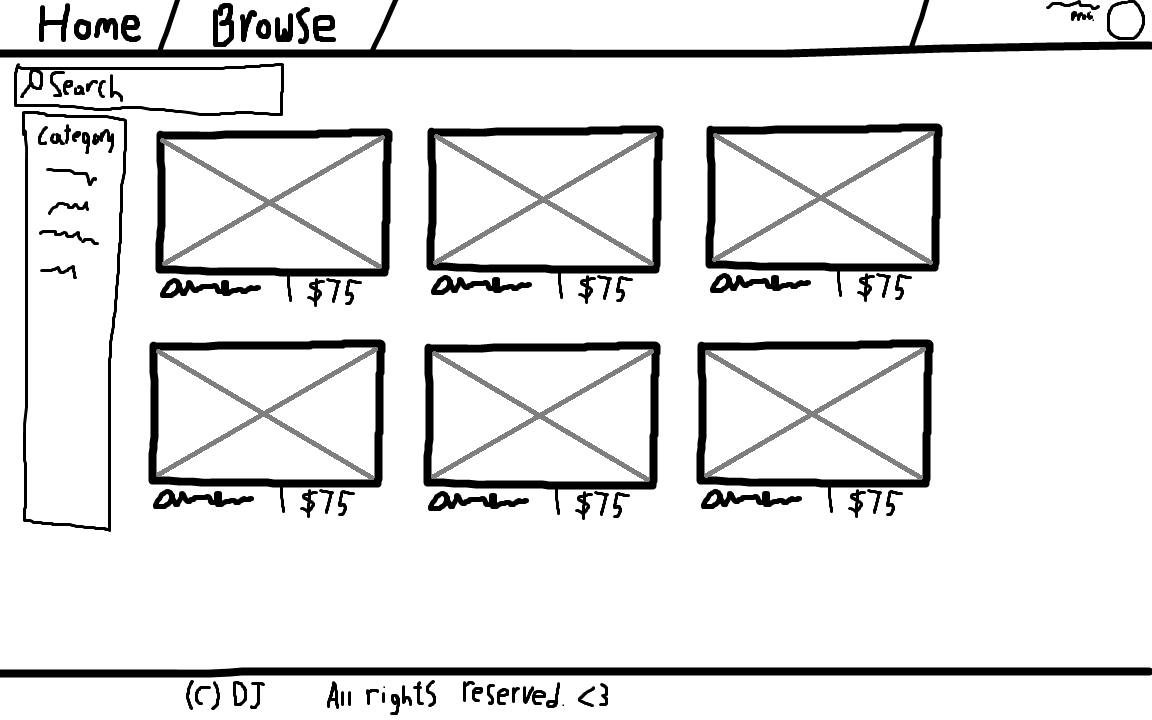 Home / Browse /
Search
Category
$75 $75 $75
$75 $75 $75
(C) DJ All rights reserved. <3